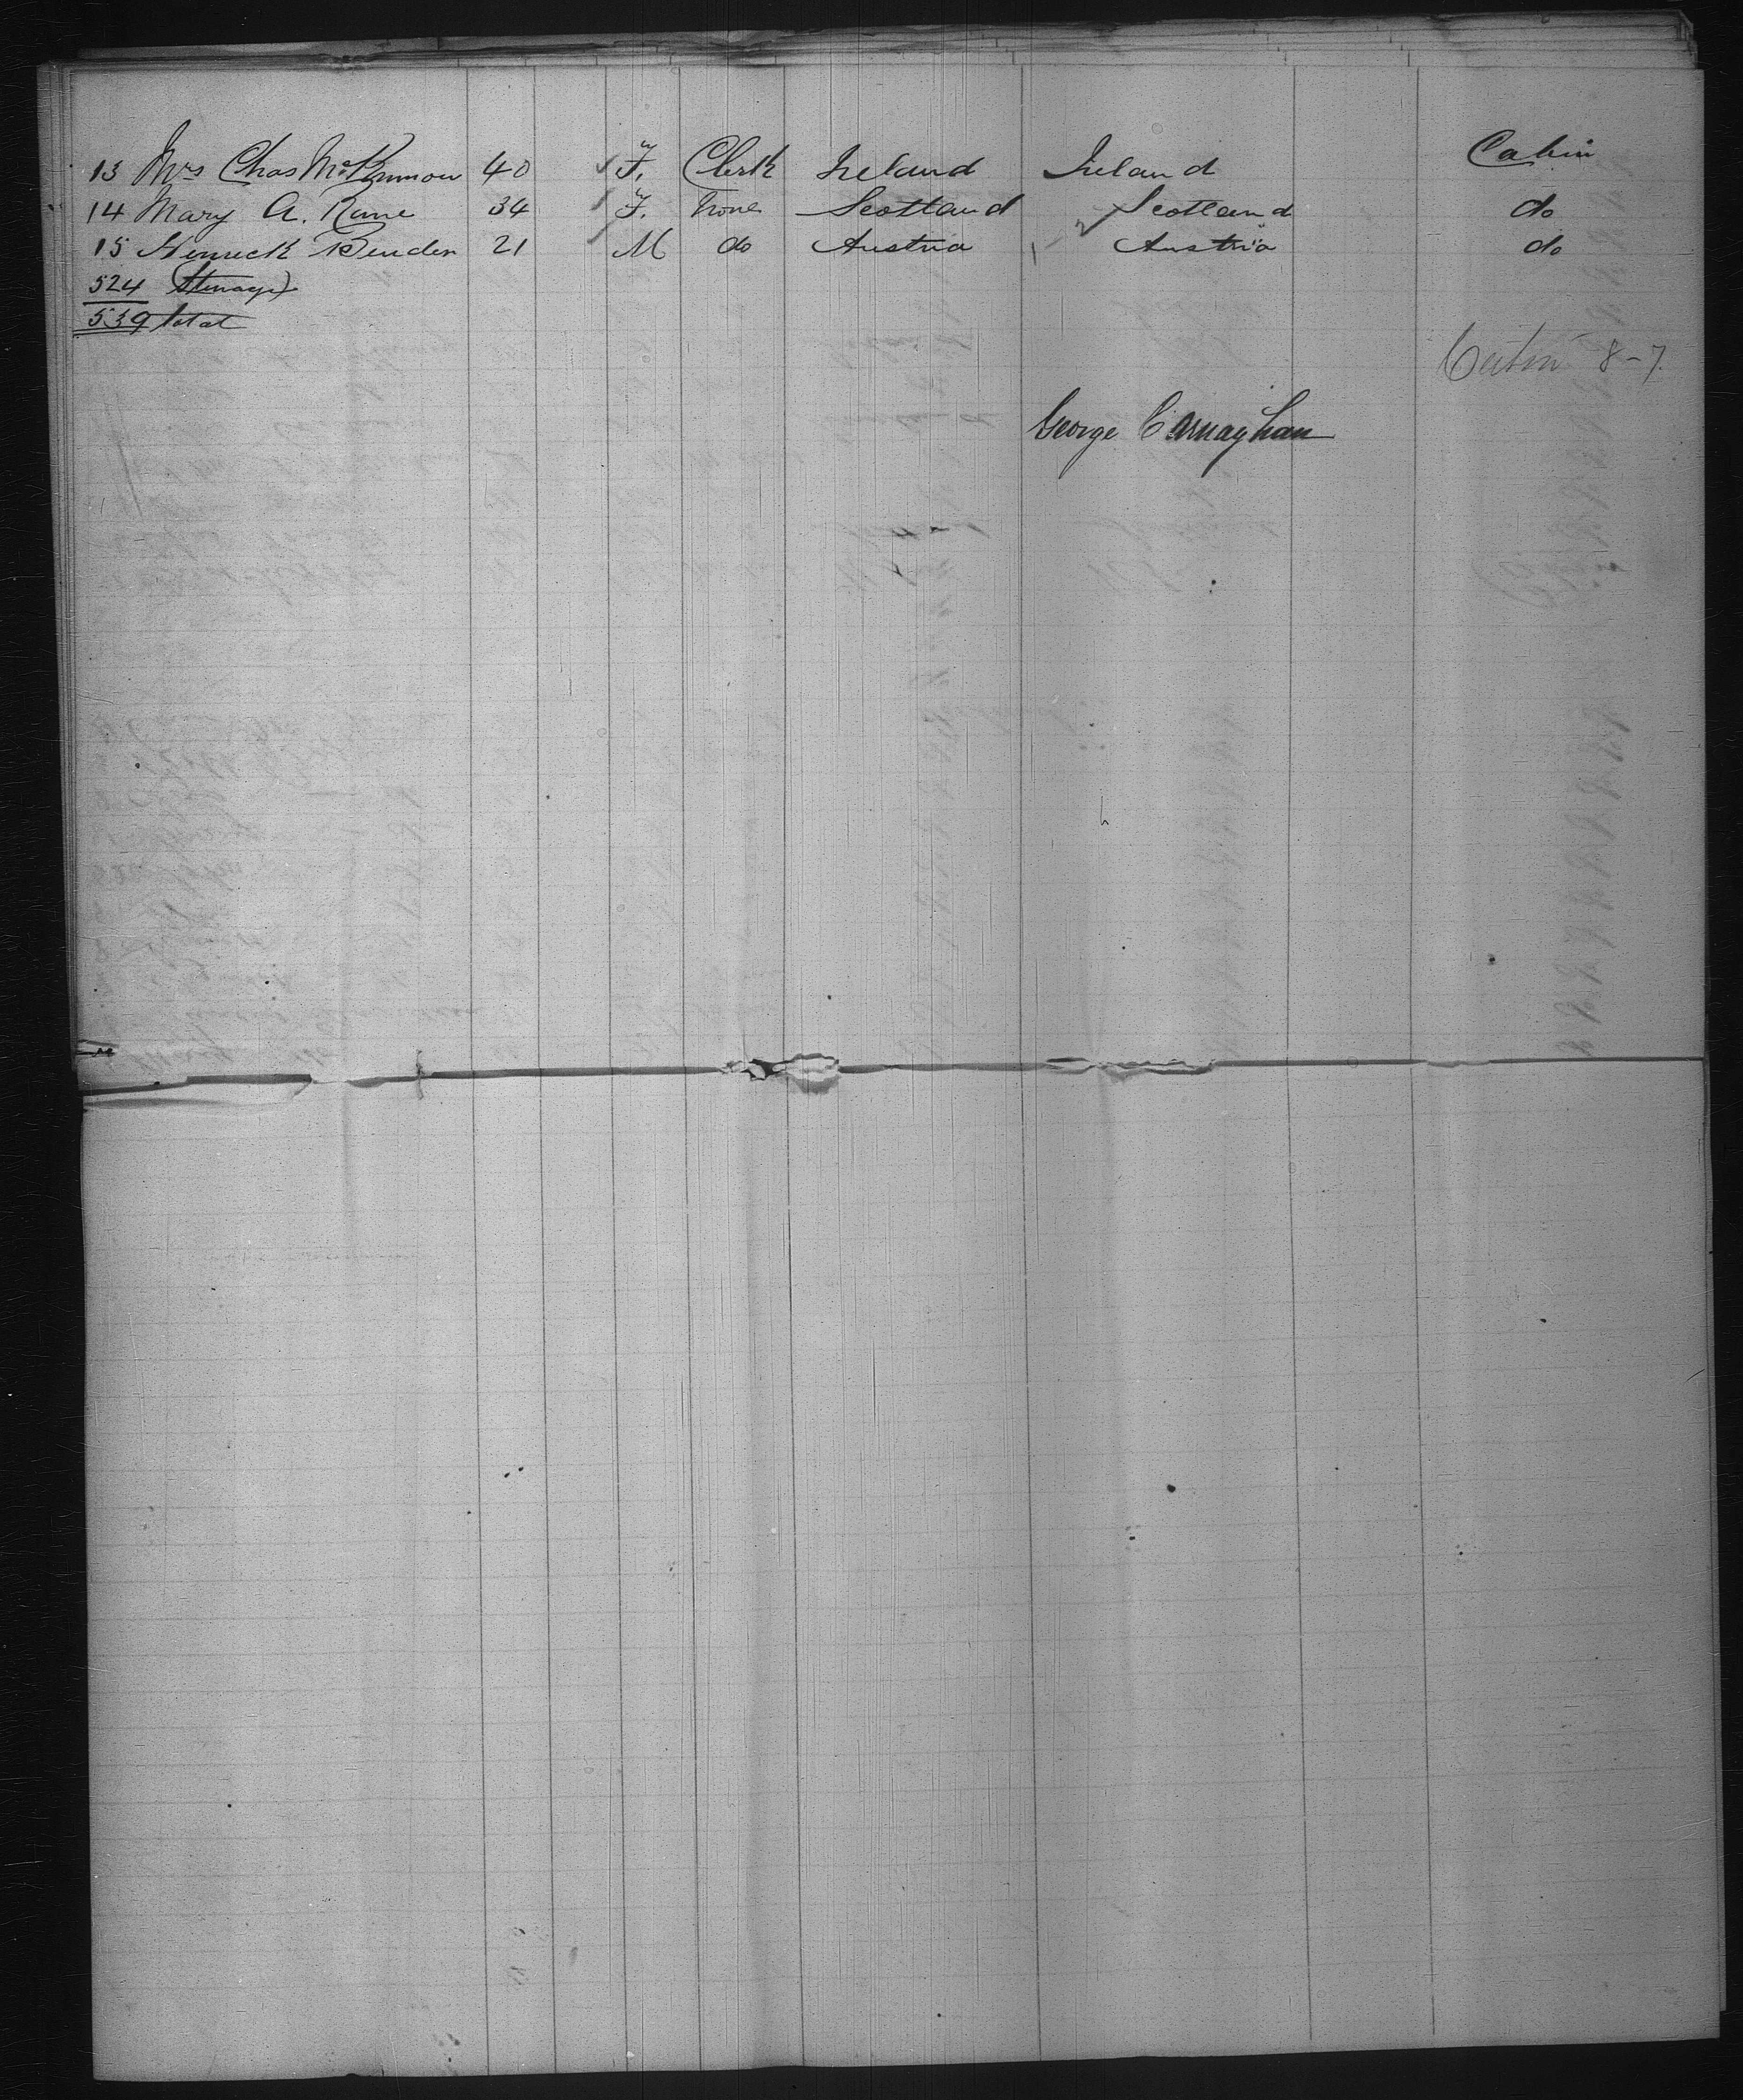 13 Mrs Chas McKinnon 40 F. Clerk Ireland Ireland Cabin
14 Mary A. Rane 34 F. None Scotland Scotland do
15 Bender 21 M do Austria Austria do
524 Steerage
539 total
Cabin 8-7
George Carnaghan